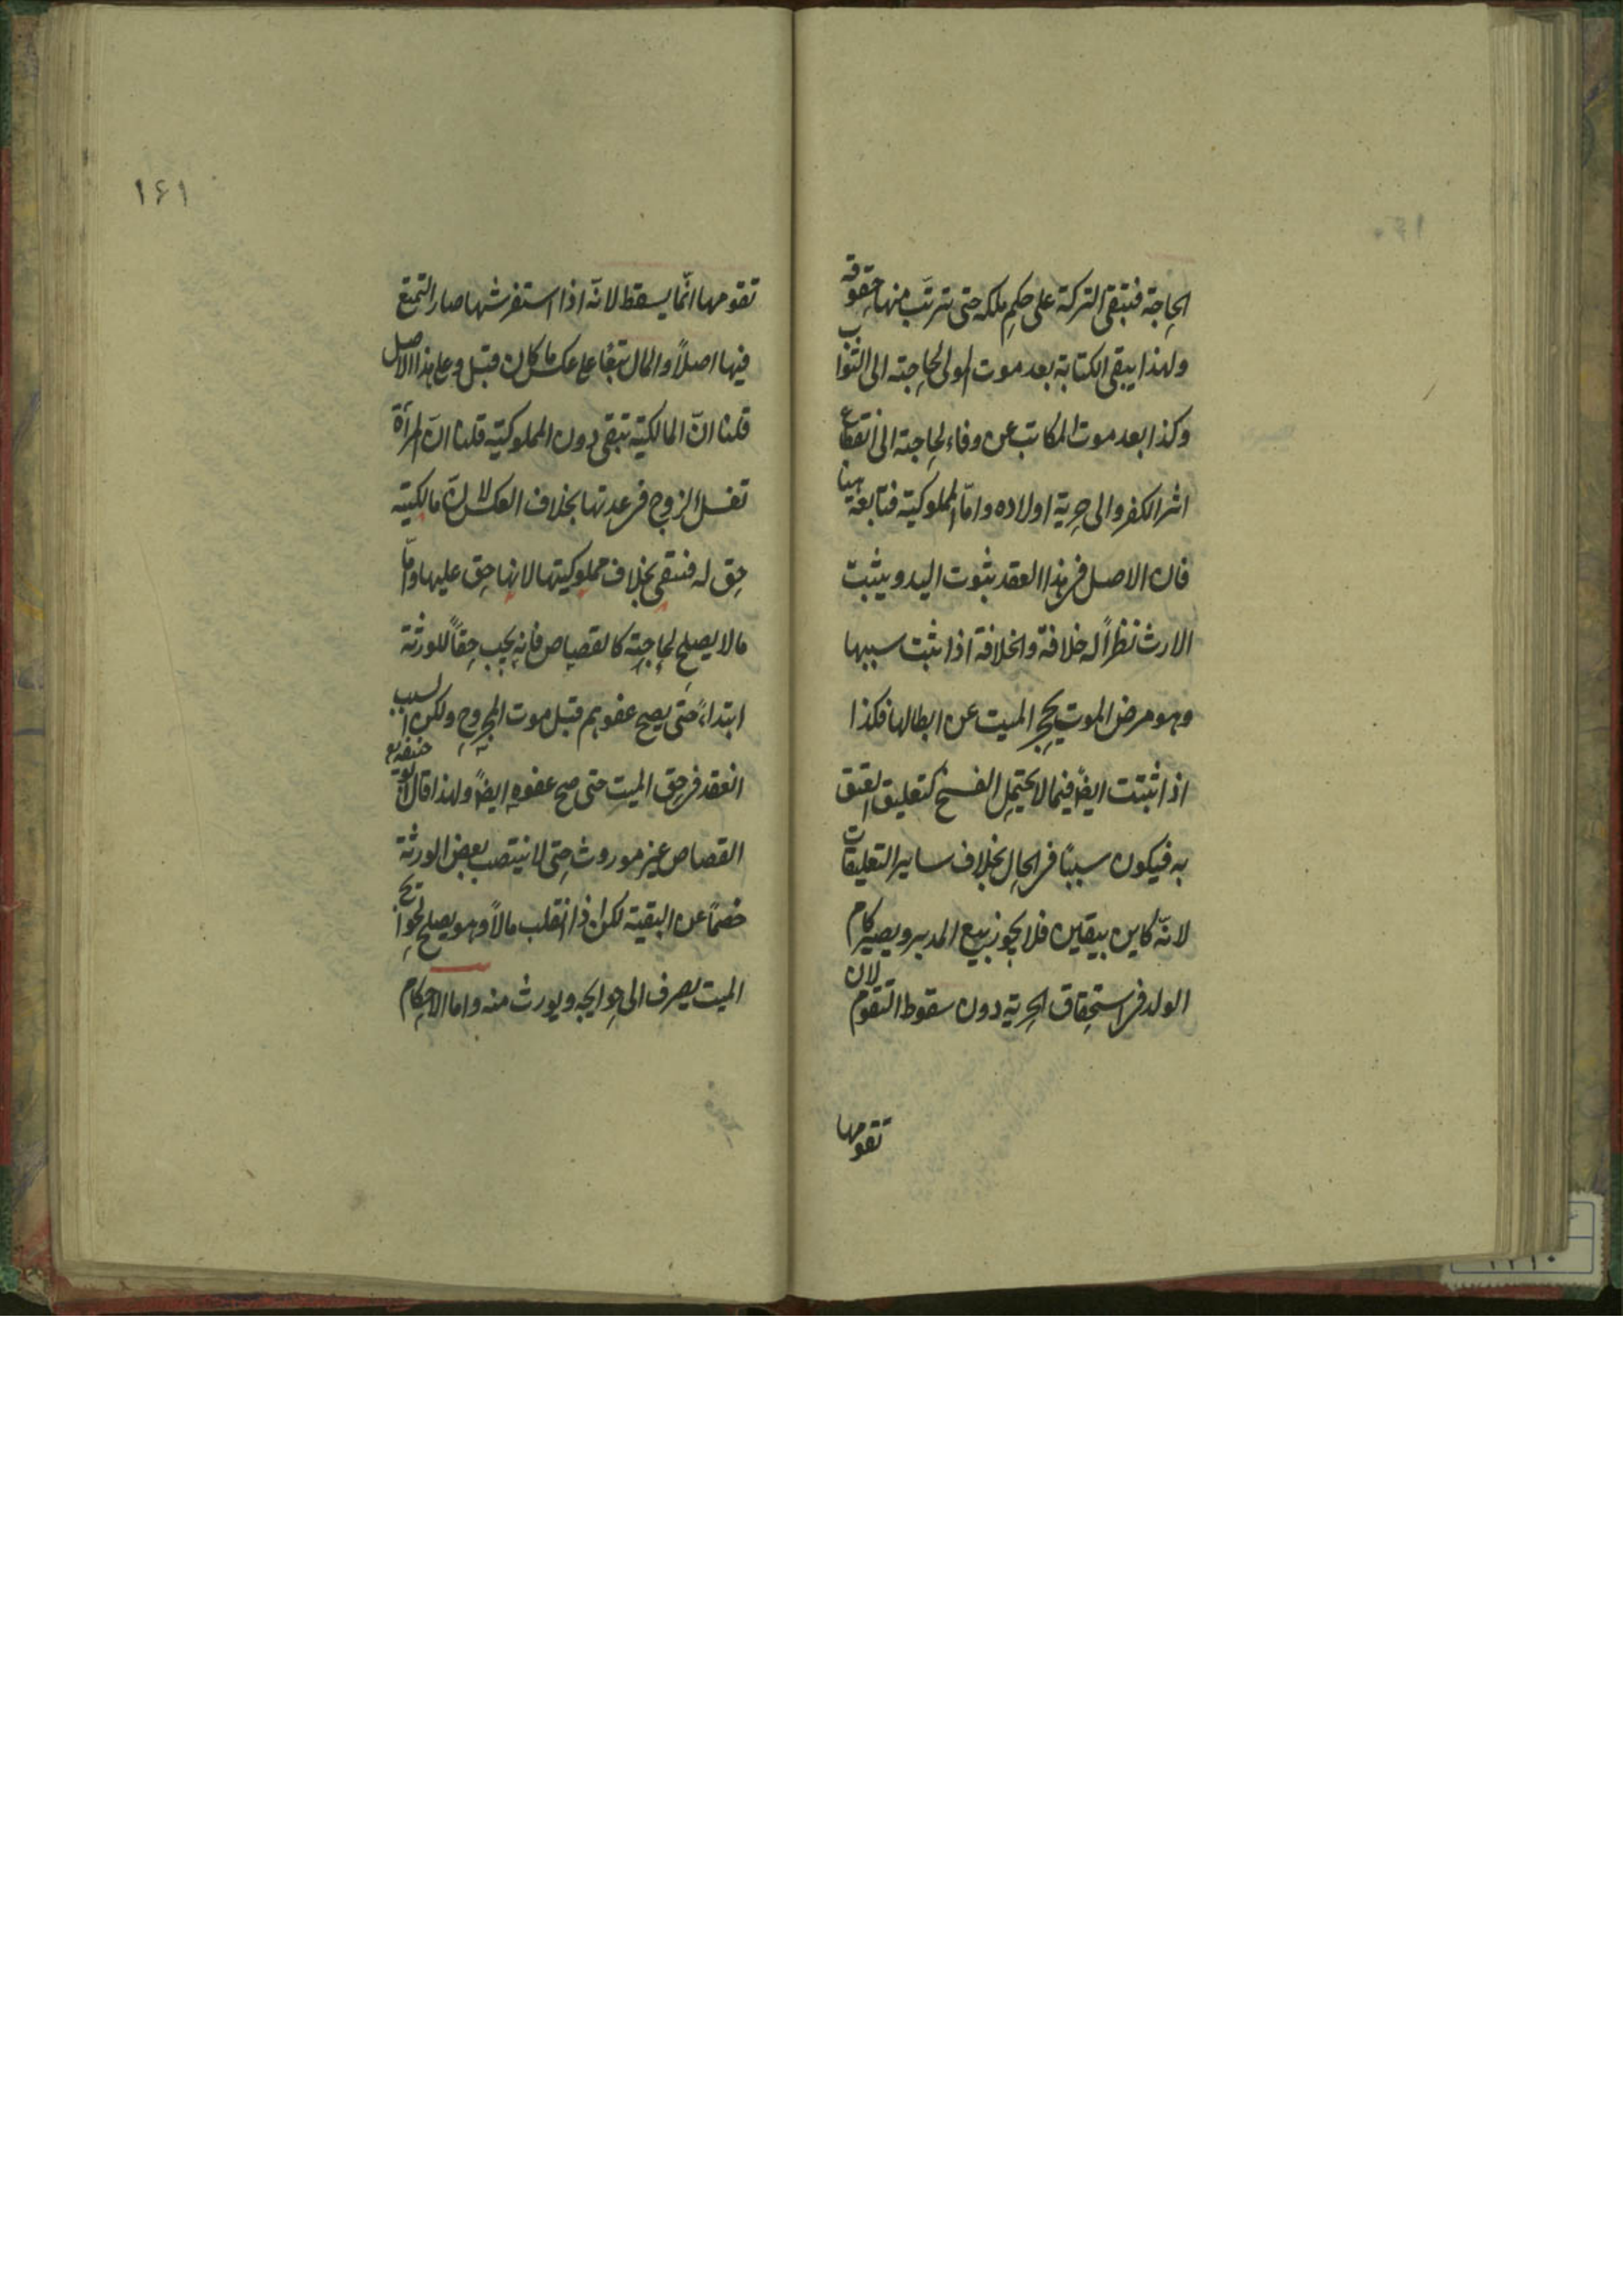 الحاجة فتبقى التركة على حكم ملكه حتى تترتب منها حقوقه
ولهذا يبقى الكتابة بعد موت المولى لحاجته الى الثواب
وكذا بعد موت المكاتب عن وفاء لحاجته الى انقطاع
اثر الكفر والى حرية اولاده وامّا المملوكية فتابعة هنا
فان الاصل فى هذا العقد ثبوت اليد ويثبت
الارث نظراً له خلافة والخلافة اذا ثبت سببها
وهو مرض الموت يحجر الميت عن ابطالها فكذا
اذا ثبتت ايضاً فيما لا يحتمل الفسخ كتعليق العتق
به فيكون سببًا فى الحال بخلاف ساير التعليقات
لانّه كاين بيقين فلا يجوز بيع المدبر ويصير كام
الولد فى استحقاق الحرية دون سقوط التقوم لان
تقومها
١۶١
تقومها انّما يسقط لانّه اذا استفرشها صار التمتع
فيها اصلاً والمال تبعًا على عكس ما كان قبل وعلى هذا الاصل
قلنا انّ المالكية تبقى دون المملوكية قلنا انّ المرأة
تغسل الزوج فى عدتها بخلاف العكس لانّ مالكيته
حق له فتبقى بخلاف مملوكيتها لانها حق عليها وامّا
ما لا يصلح لحاجته كالقصاص فانه يجب حقاً للورثة
ابتداءً حتى يصح عفوهم قبل موت المجروح ولكن السبب
انعقد فى حق الميت حتى صح عفوه ايضاً ولهذا قال ابو حنيفة رح
القصاص غير موروث حتى لا ينتصب بعض الورثة
خصمًا عن البقية لكن اذا انقلب مالاً وهو يصلح لحوايج
الميت يصرف الى حوايجه ويورث منه واما الاحكام